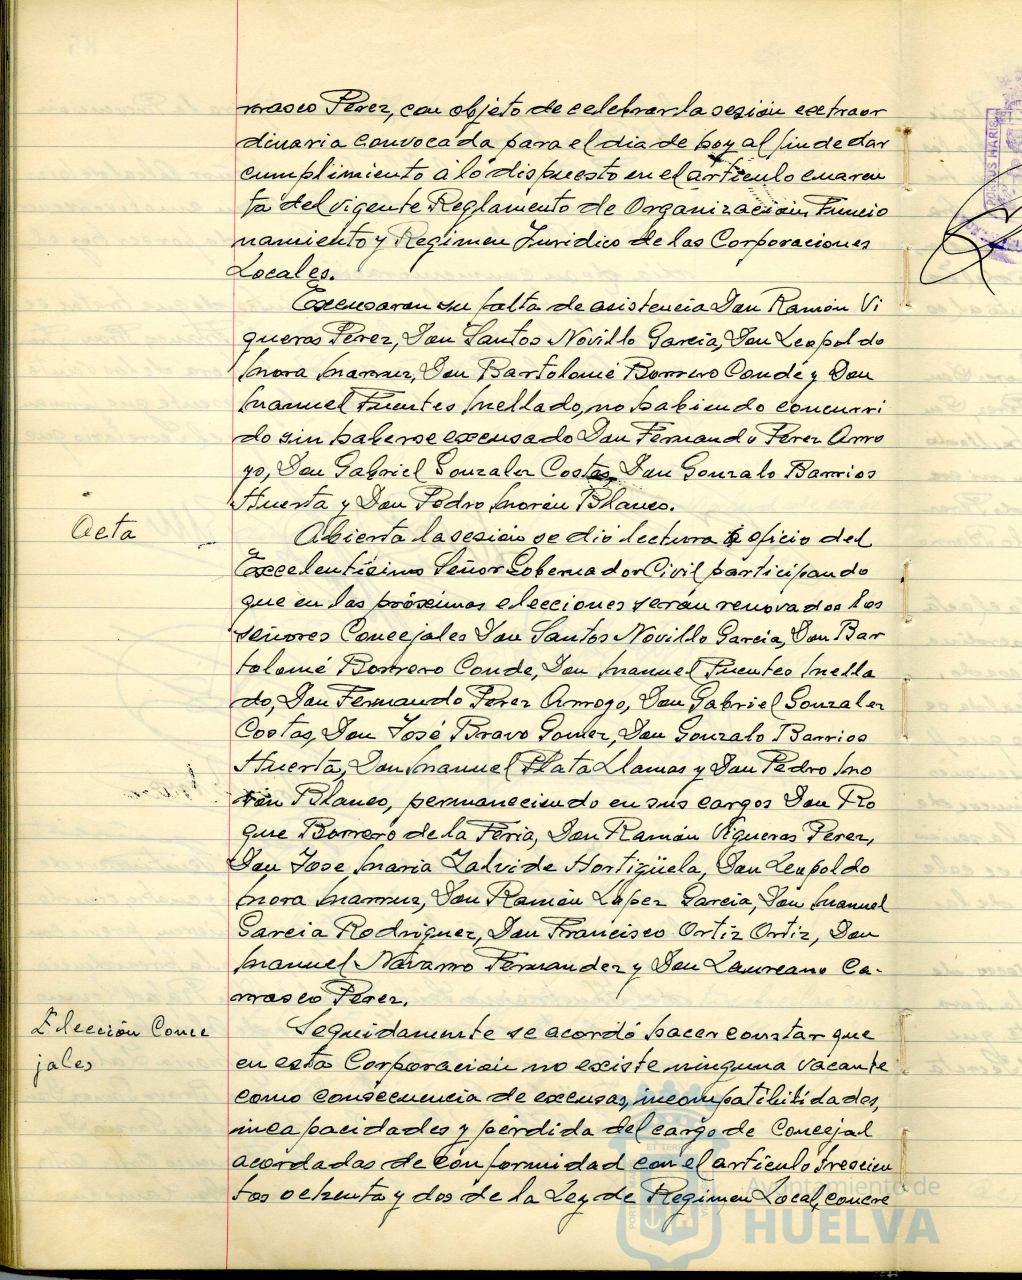 rrasco Perez, con objeto de celebrar la sesión extraor
dinaria convocada para el dia de hoy al fin de dar
cumplimiento á lo dispuesto en el artículo cuaren
ta del vigente Reglamento de Organización, Funcio
namiento y Regimen Juridico de las Corporaciones
Locales.
Excusaron su falta de asistencia Don Ramón Vi
gueras Perez, Don Santos Novillo Garcia, Don Leopoldo
Mora Marruz, Don Bartolomé Borrero Conde y Don
Manuel Fuentes Mellado, no habiendo concurri
do sin haberse excusado Don Fernando Perez Arro
yo, Don Gabriel Gonzalez Costas, Don Gonzalo Barrios
Huerta y Don Pedro Morón Blanco.
Acta
Abierta la sesión se dio lectura á oficio del
Excelentísimo Señor Gobernador Civil participando
que en las próximas elecciones serán renovados los
señores Concejales Don Santos Novillo Garcia, Don Bar
tolomé Borrero Conde, Don Manuel Fuentes Mella
do, Don Fernando Perez Arroyo, Don Gabriel Gonzalez
Costas, Don José Bravo Gomez, Don Gonzalo Barrios
Huerta, Don Manuel Plata Llamas y Don Pedro Mo
rón Blanco, permaneciendo en sus cargos Don Ro
que Borrero de la Feria, Don Ramón Vigueras Perez,
Don Jose Maria Zalvide Hortigüela, Don Leopoldo
Mora Marruz, Don Ramón López Garcia, Don Manuel
Garcia Rodriguez, Don Francisco Ortiz Ortiz, Don
Manuel Navarro Fernandez y Don Laureano Ca-
rrasco Perez.
Elección Conce
jales
Seguidamente se acordó hacer constar que
en esta Corporación no existe ninguna vacante
como consecuencia de excusas, incompatibilidades,
incapacidades y pérdida del cargo de Concejal
acordadas de conformidad con el artículo trescien
tos ochenta y dos de la Ley de Regimen Local, concre
Ayuntamiento de
HUELVA